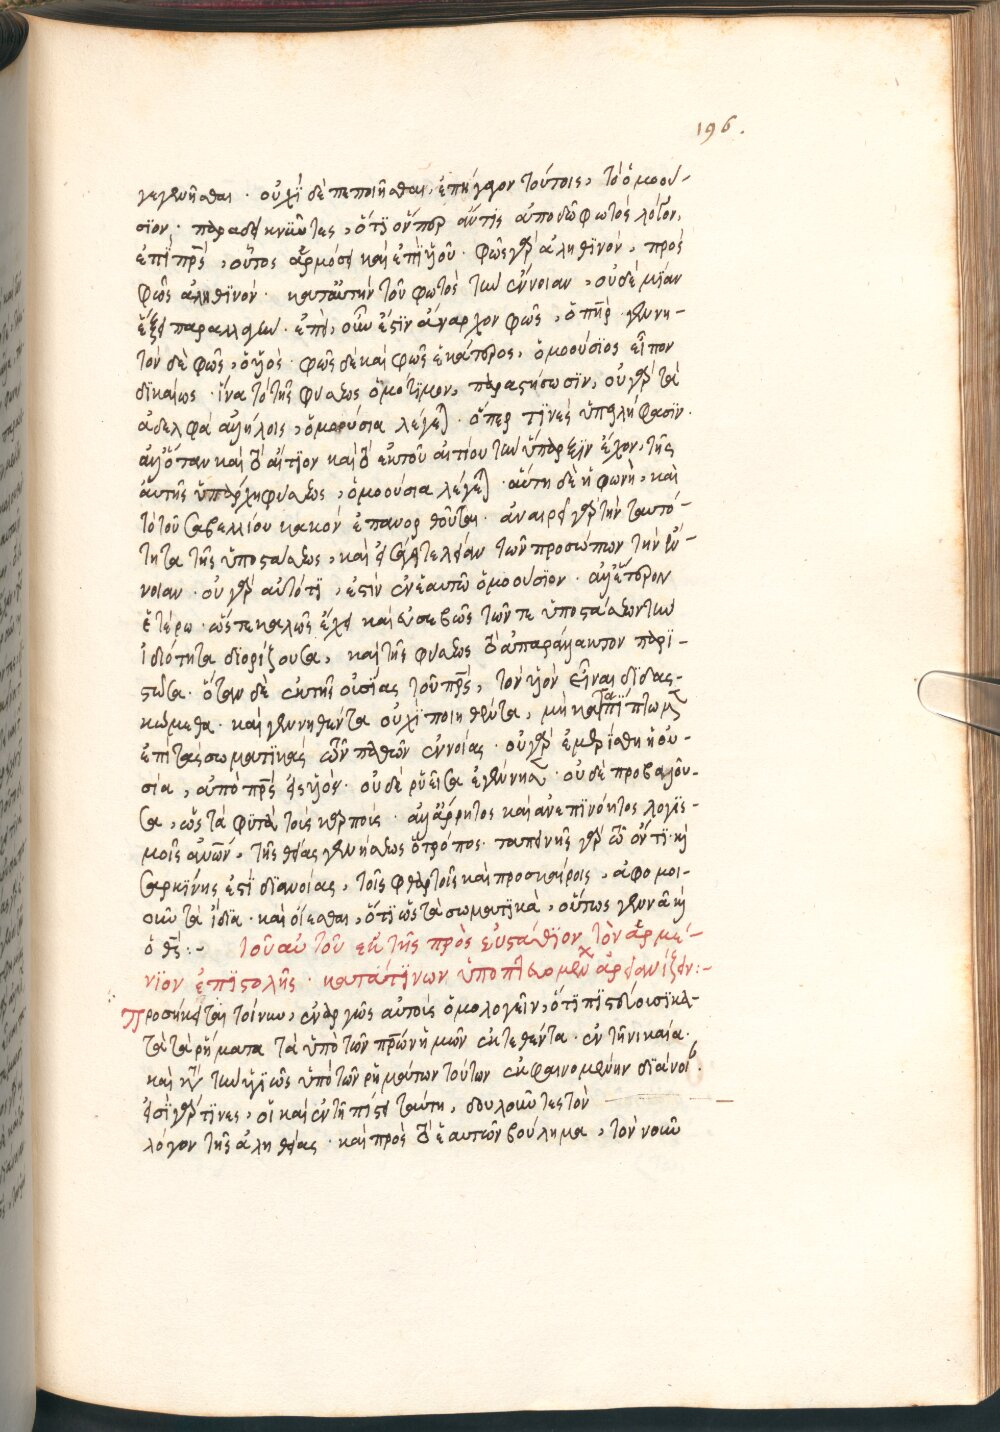 196.
γεγεννῆσθαι · οὐχὶ δὲ πεποιῆσθαι, ἐπήγαγον τούτοις, τὸ ὁμοού-
σϊον, παραδεικνῦντες, ὅτϊ ὅνπερ ἄν τϊς ἀποδῶ φωτὸς λόγον,
ἐπὶ πρς, οὗτος ἁρμόσει καὶ ἐπὶ ϋἱοῦ · φῶς γὰρ ἀληθϊνὸν, πρὸς
φῶς ἀληθϊνὸν · κατ αὐτὴν τοῦ φωτὸς τὴν ἔννοιαν, οὐδὲ μΐαν
ἕξει παραλλαγὴν · ἐπεὶ, οὖν ἐστϊν ἄναρχον φῶς, ὁ πηρ · γεννη-
τὸν δὲ φῶς, ὁ ϋἱὸς · φῶς δὲ καὶ φῶς ἑκάτερος, ὁμοούσϊος εἶπον
δϊκαίως · ἵνα τὸ τῆς φύσεως ὁμότϊμον, παραστήσωσϊν, οὐ γὰρ τὰ
ἀδελφὰ ἀλλήλοις, ὁμοούσια λέγεται · ὅπερ τϊνὲς ὑπειλήφασϊν ·
ἀλλ ὅταν καὶ τὸ αἴτϊον καὶ τὸ ἐκ τοῦ αἰτίου τὴν ὕπαρξϊν ἔχον, τῆς
αὐτῆς ὑπάρχη φύσεως, ὁμοούσια λέγεται · αὕτη δὲ ἡ φωνὴ, καὶ
τὸ τοῦ Σαβελλίου κακὸν ἐπανορθοῦται · ἀναιρεῖ γὰρ τὴν ταυτό-
τητα τῆς ὑποστάσεως, καὶ εἰσάγει τελείαν τῶν προσώπων τὴν ἔν-
νοιαν · οὐ γὰρ αὐτό τϊ, ἐστὶν ἐν ἑαυτῶ ὁμοούσϊον · ἀλλ ἕτερον
ἑτέρω · ὥστε καλῶς ἔχει καὶ εὐσεβῶς τῶν τε ὑποστάσεων τὴν
ἰδιότητα διορίζουσα, καὶ τῆς φύσεως τὸ ἀπαράλλακτον παρϊ-
στῶσα · ὅταν δὲ ἐκ τῆς οὐσίας τοῦ πρς, τὸν ϋἱὸν εἶναι διδας-
κώμεθα · καὶ γεννηθέντα οὐχὶ ποιηθέντα, μὴ καταπίπτωμεν
ἐπὶ τὰς σωματϊκὰς τῶν παθῶν ἐννοίας · οὐ γὰρ ἐμερίσθη ἡ οὐ-
σία, ἀπὸ πρς εἰς ϋἱὸν · οὐδὲ ῥυεῖσα ἐγέννησεν · οὐδὲ προβαλοῦ-
σα, ὡς τὰ φϋτὰ τοὺς καρποὺς · ἀλλ ἄρρητος καὶ ἀνεπϊνόητος λογϊσ-
μοῖς ανων, τῆς θείας γεννήσεως ὁ τρόπος · ταπεινῆς γὰρ τῶ ὄντϊ καὶ
σαρκίνης ἐστὶ διανοίας, τοῖς φθαρτοῖς καὶ προσκαίροις, ἀφομοι-
οῦν τὰ ἀΐδϊα · καὶ οἴεσθαι, ὅτϊ ὡς τὰ σωματϊκὰ, οὕτως γεννᾶ καὶ
ὁ θς :- τοῦ αὐτοῦ ἐκ τῆς πρὸς εὐστάθϊον τὸν ἀρμέ-
νϊον ἐπϊστολῆς · κατά τϊνων ὑποπτευομένων ἀρειανίζειν :-
προσήκει ται τοίνυν, ἐναργῶς αὐτοὺς ὁμολογεῖν, ὅτϊ πϊστεύουσϊ κα-
τὰ τὰ ῥήματα τὰ ὑπὸ τῶν πρων ἡμῶν ἐκτεθέντα · ἐν τῆ νικαία ·
καὶ κατὰ τὴν ὑγιῶς ὑπὸ τῶν ῥημάτων τούτων ἐκφαινομένην διάνοι.
εἰσὶ γάρ τϊνες, οἳ καὶ ἐν τῆ πίστει ταύτη, δολοῦντες τὸν
λόγον τῆς ἀληθείας · καὶ πρὸς τὸ ἑαυτῶν βούλημα, τὸν νοῦν